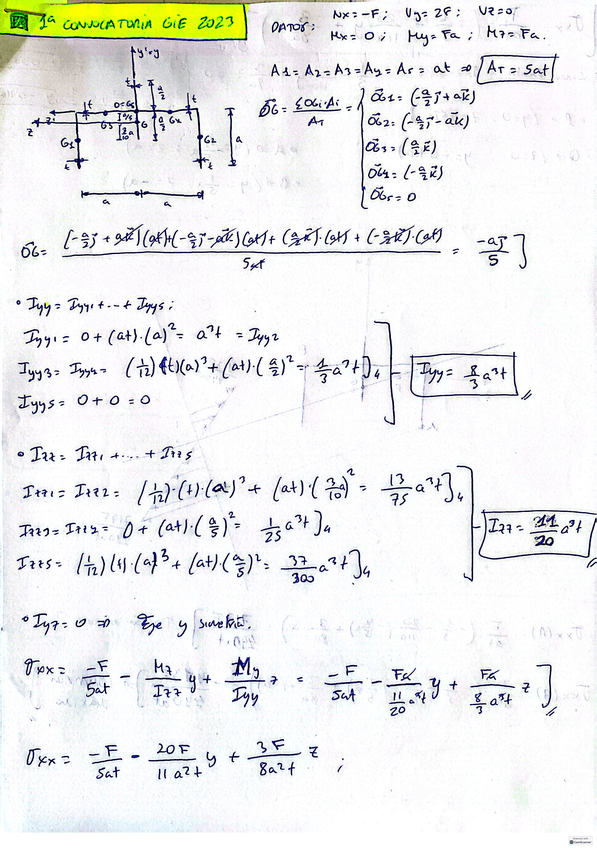 1ª CONVOCATORIA GIE 2023
DATOS: Nx=-F ; Vy=2F ; Vz=0
Mx=0 ; My=Fa ; Mz=Fa.
A1=A2=A3=A4=A5=at ⇒ AT=5at
OG = ΣOGi·Ai / AT = { OG1=(-a/2 j + a k)
OG2=(-a/2 j - a k)
OG3=(a/2 k)
OG4=(-a/2 k)
OG5=0
y'≡y
t
a/2
O≡G5
G3
G4
G
z'
z
G1
G2
t
a
a
a
OG = (-a/2 j + ak)(at)+(-a/2 j - ak)(at)+(a/2 k)·(at)+(-a/2 k)·(at) / 5at = -aj/5 ]
° Iyy = Iyy1+...+Iyy5;
Iyy1 = 0+(at)·(a)² = a³t = Iyy2
Iyy3 = Iyy4 = (1/12)(t)(a)³+(at)·(a/2)² = 1/3 a³t ]4
Iyy5 = 0+0=0
Iyy = 8/3 a³t
° Izz = Izz1+....+Izz5
Izz1 = Izz2 = (1/12)·(t)·(a)³ + (at)·(3a/10)² = 13/75 a³t ]4
Izz3 = Izz4 = 0+(at)·(a/5)² = 1/25 a³t ]4
Izz5 = (1/12)(t)·(a)³ + (at)·(a/5)² = 37/300 a³t ]4
Izz = 11/20 a³t
° Iyz=0 ⇒ Eje y simetría.
σxx = -F/5at - Mz/Izz y + My/Iyy z = -F/5at - Fa/(11/20 a³t) y + Fa/(8/3 a³t) z ]
σxx = -F/5at - 20F/11a²t y + 3F/8a²t z ;
CamScanner